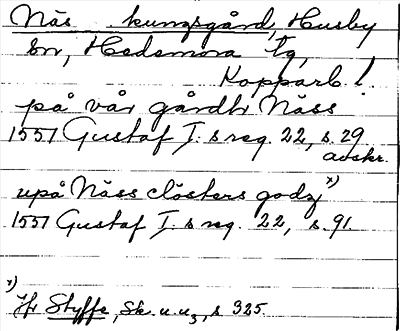 Näs kungsgård, Husby
sn, Hedemora tg,
Kopparb. l.
på vår gårdh Näss
1551 Gustaf I. s reg. 22, s. 29
avskr.
upå Näss clösters godz x)
1551 Gustaf I. s reg. 22, s. 91.
x)
Jfr Styffe, Sk. u. u3, s 325.